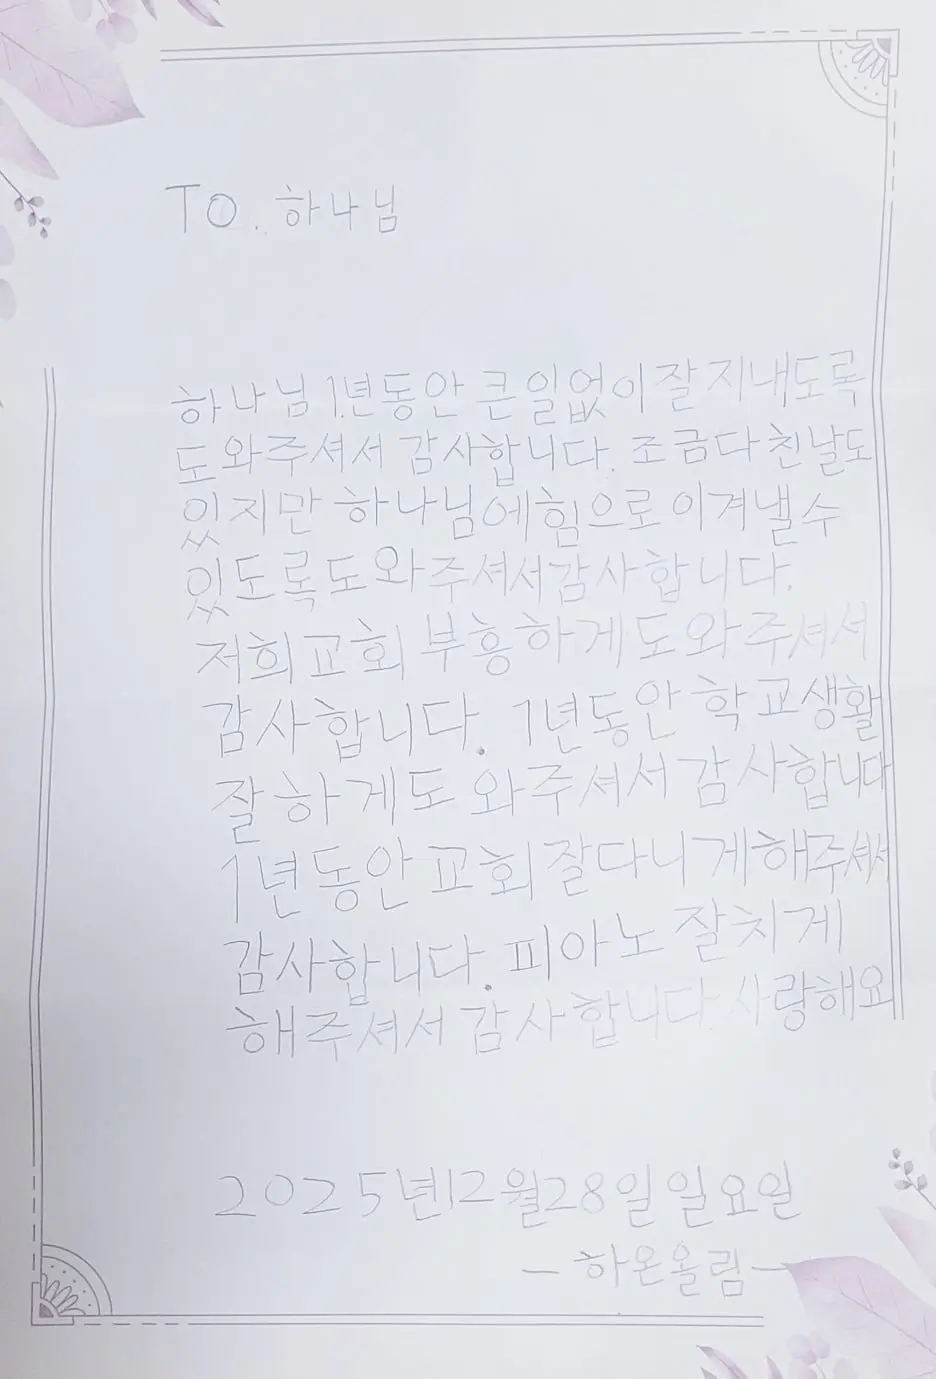 TO. 하나님
하나님 1년동안 큰일없이 잘 지내도록
도와주셔서 감사합니다. 조금다친날도
있지만 하나님에힘으로 이겨낼수
있도록도와주셔서감사합니다.
저희교회 부흥하게도와주셔서
감사합니다. 1년동안 학교생활
잘하게도와주셔서 감사합니다
1년동안교회잘다니게해주셔서
감사합니다. 피아노 잘치게
해주셔서 감사합니다. 사랑해요
2025년12월28일일요일
- 하온올림 -